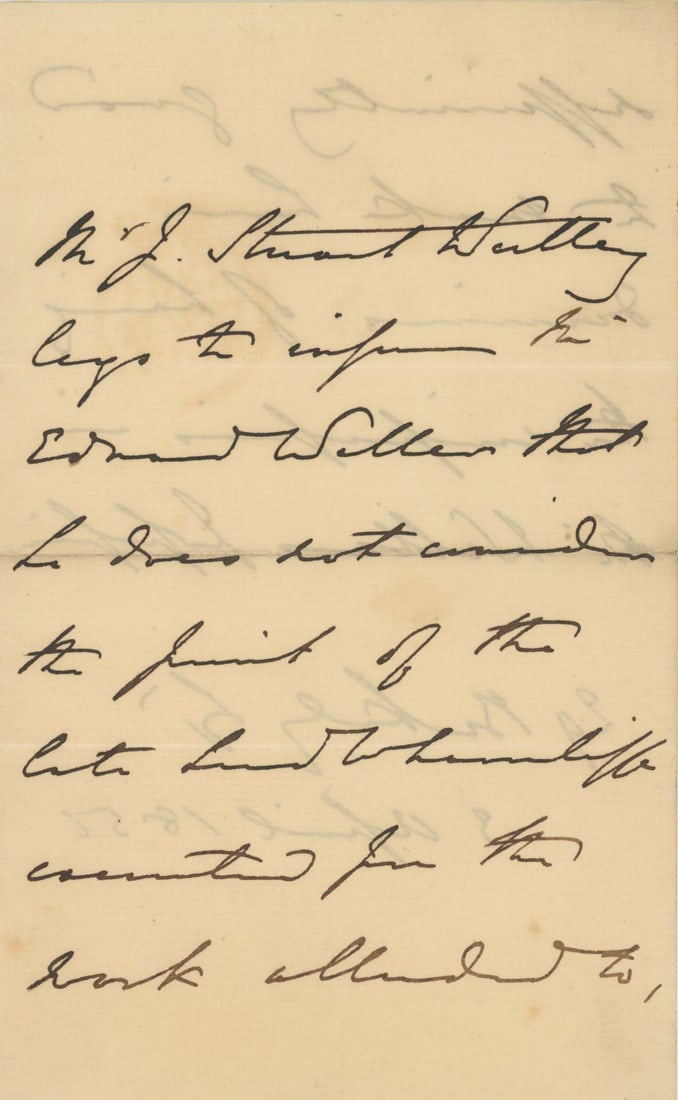 Mr J. Stuart Wortley
begs to inform Mr
Edward Walker that
he does not consider
the print of the
late Lord Wharncliffe
executed for the
work alluded to,